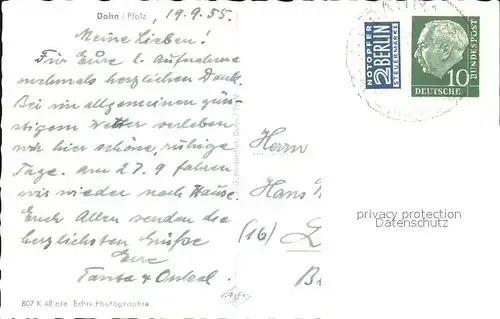 Dahn / Pfalz
, 19.9.55.
Meine Lieben!
Für Eure l. Aufnahme
nochmals herzlichen Dank.
Bei im allgemeinen gün-
stigem Wetter verleben
wir hier schöne, ruhige
Tage. am 27.9 fahren
wir wieder nach Hause.
Euch Allen senden die
herzlichsten Grüße
Eure
Tante & Onkel.
807 K 48 e/e Echte Photographie
NOTOPFER
2 BERLIN
STEUERMARKE
10
DEUTSCHE
BUNDESPOST
Herrn
Hans
(16)
privacy protection
Datenschutz